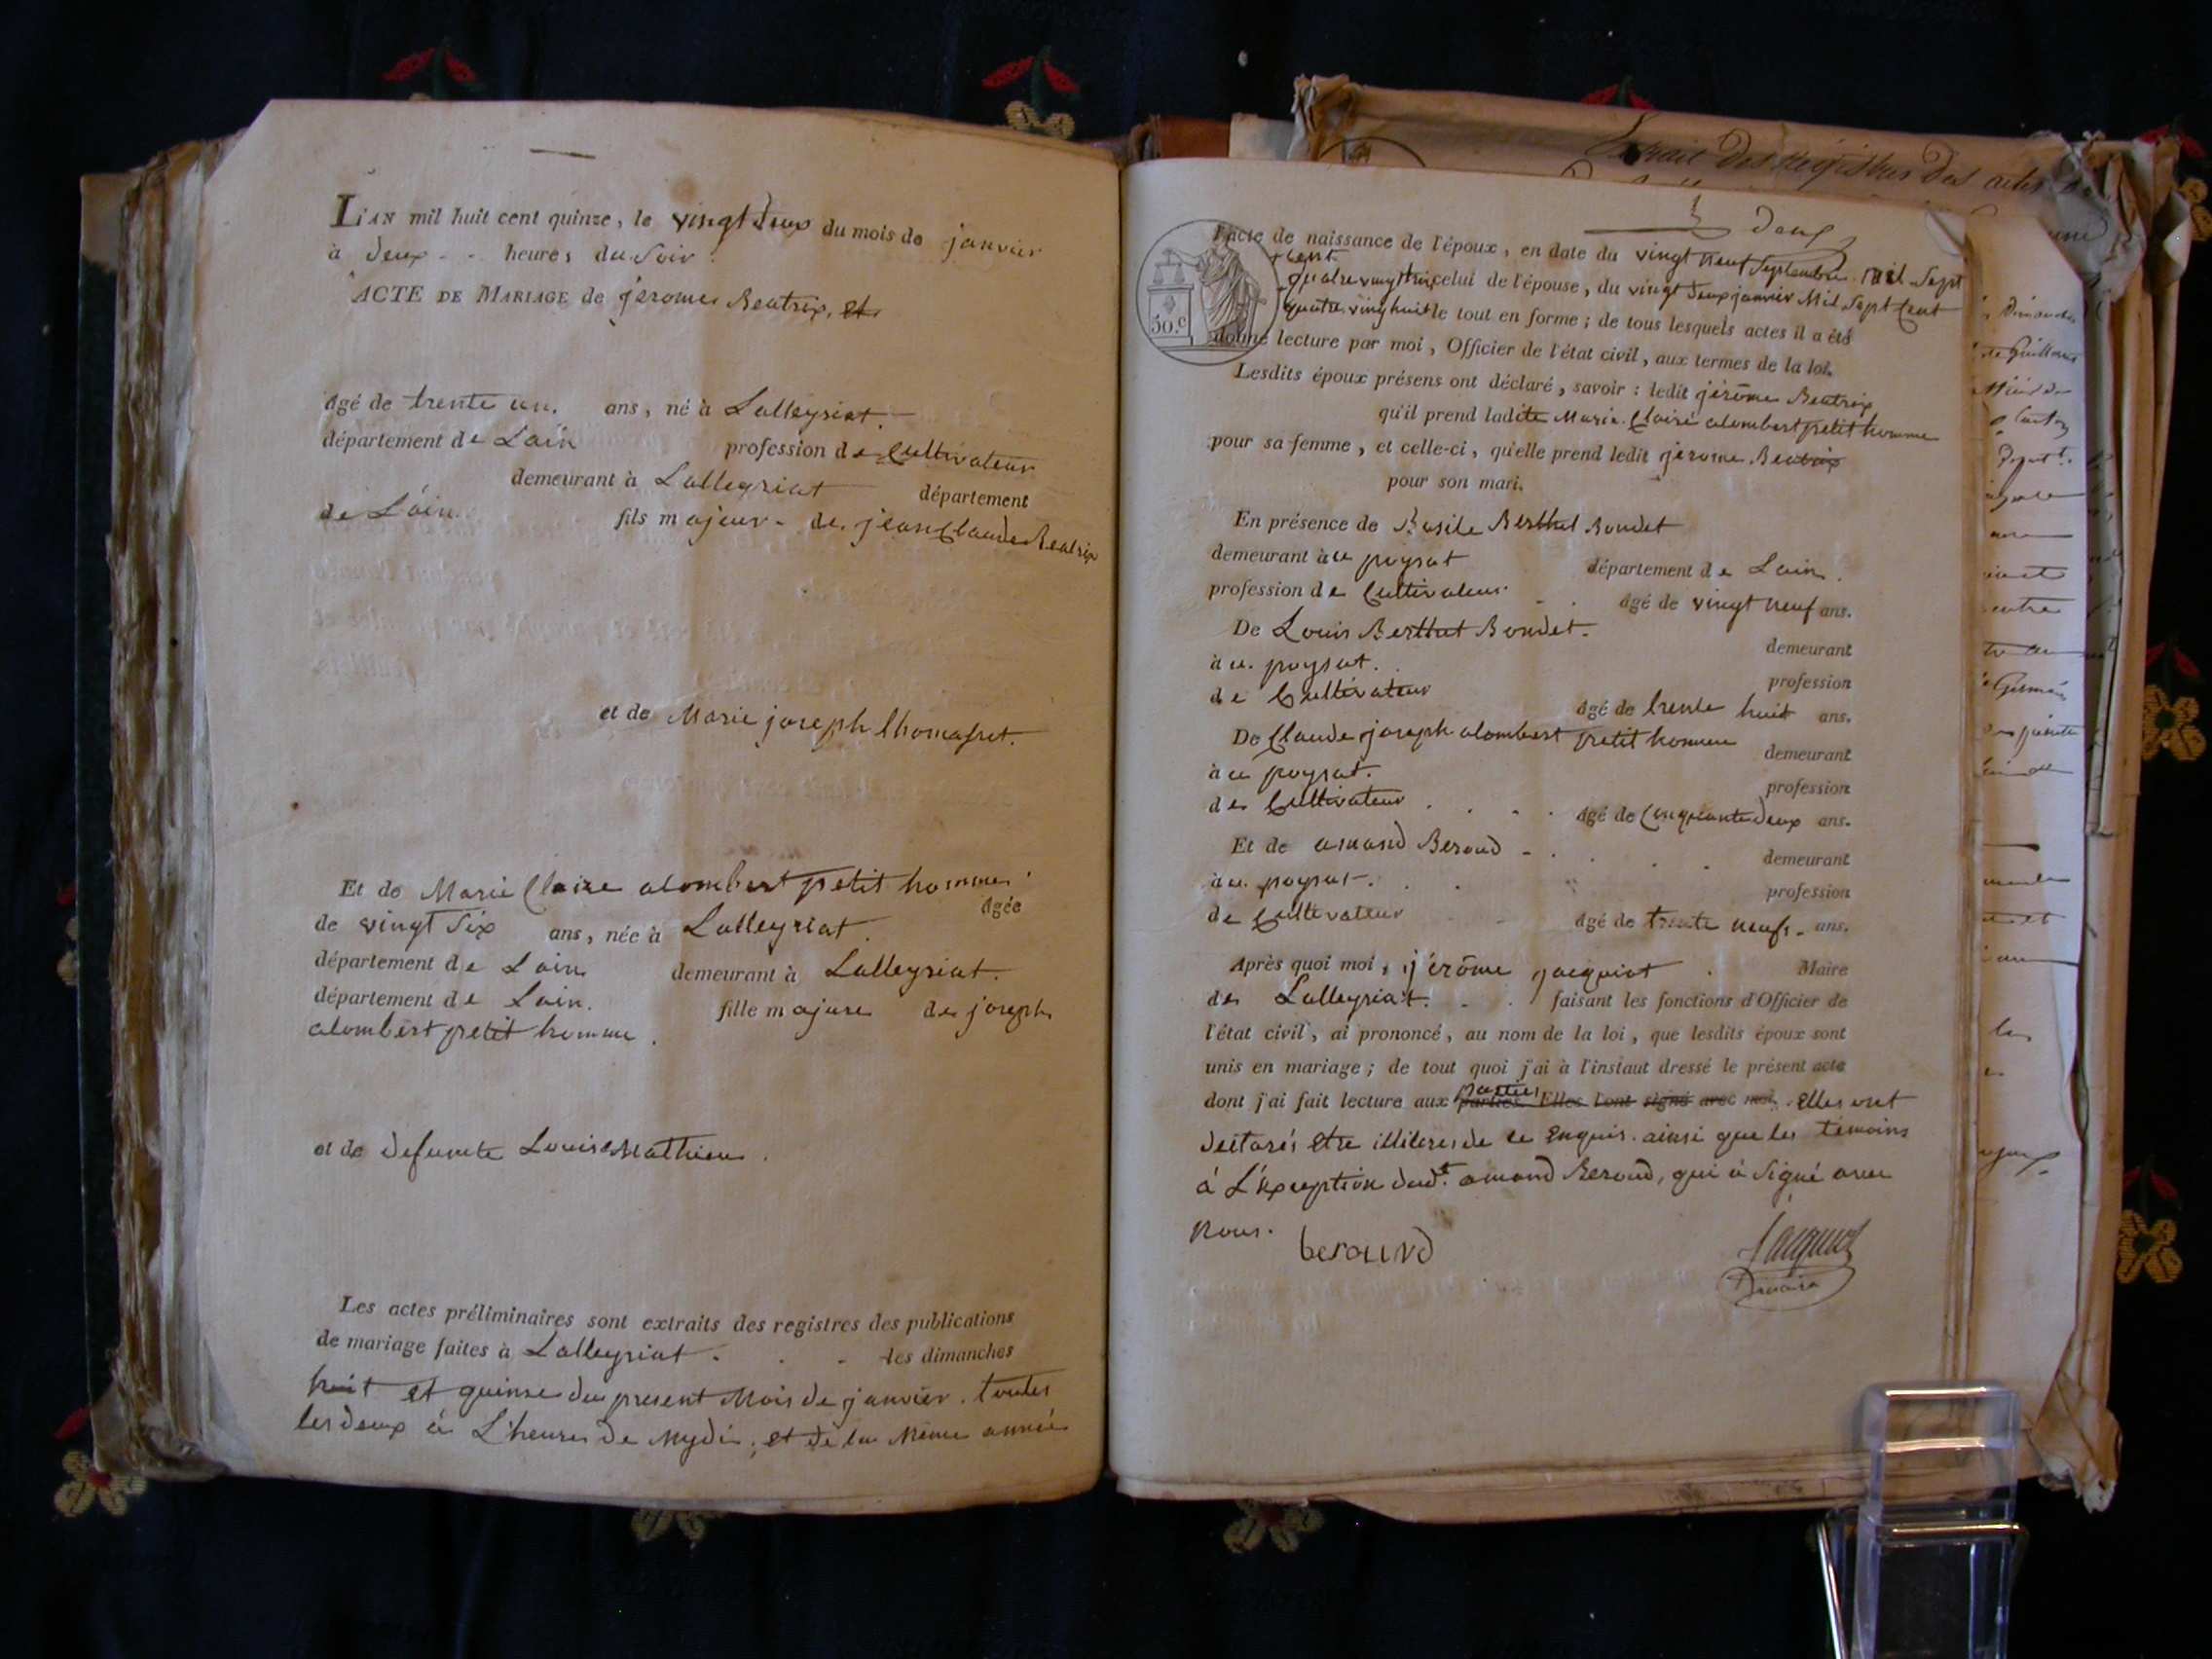 L'AN mil huit cent quinze, le vingt deux du mois de janvier
à deux - - heures du soir.
ACTE DE MARIAGE de jerome Beatrix, et
âgé de trente un. ans, né à Lalleyriat.
département de Lain profession de Cultivateur
demeurant à Lalleyriat département
de L'ain. fils majeur - de jean Claude Beatrix
et de Marie joseph thomasset.
Et de Marie Claire alombert petit homme âgée
de vingt six ans, née à Lalleyriat
département de Lain demeurant à Lalleyriat.
département de Lain. fille majure de joseph
alombert petit homme.
et de defunte Louise Mathieu.
Les actes préliminaires sont extraits des registres des publications
de mariage faites à Lalleyriat. les dimanches
huit et quinse du present Mois de janvier. toutes
les deux à L'heure de mydi; et de la Même année
Extrait des Registres des actes
deux
50.c
l'acte de naissance de l'époux, en date du vingt neuf septembre mil sept
cent
quatre vingt trois, celui de l'épouse, du vingt deux janvier Mil sept Cent
quatre vingt huit le tout en forme; de tous lesquels actes il a été
donné lecture par moi, Officier de l'état civil, aux termes de la loi.
Lesdits époux présens ont déclaré, savoir: ledit jérôme Beatrix
qu'il prend ladite Marie Claire alombert petit homme
pour sa femme, et celle-ci, qu'elle prend ledit jerome Beatrix
pour son mari.
En présence de Basile Berthet Bondet
demeurant à ce poysat département de Lain.
profession de Cultivateur âgé de vingt neuf ans.
De Louis Berthet Bondet. demeurant
à ce poysat. profession
de Cultivateur âgé de trente huit ans.
De Claude joseph alombert petit homme demeurant
à ce poysat. profession
de Cultivateur âgé de Cinquante deux ans.
Et de amand Beroud demeurant
à ce poysat. profession
de Cultivateur âgé de trente neuf ans.
Après quoi moi, jérôme jacquiot Maire
de Lalleyriat. faisant les fonctions d'Officier de
l'état civil, ai prononcé, au nom de la loi, que lesdits époux sont
unis en mariage; de tout quoi j'ai à l'instant dressé le présent acte
parties
dont j'ai fait lecture aux parties. Elles l'ont signé avec moi. elles ont
declarés etre illiteres de ce enquis. ainsi que les temoins
à L'exception dud.t amand Beroud, qui à signé avec
nous.
beround
Jacquiot